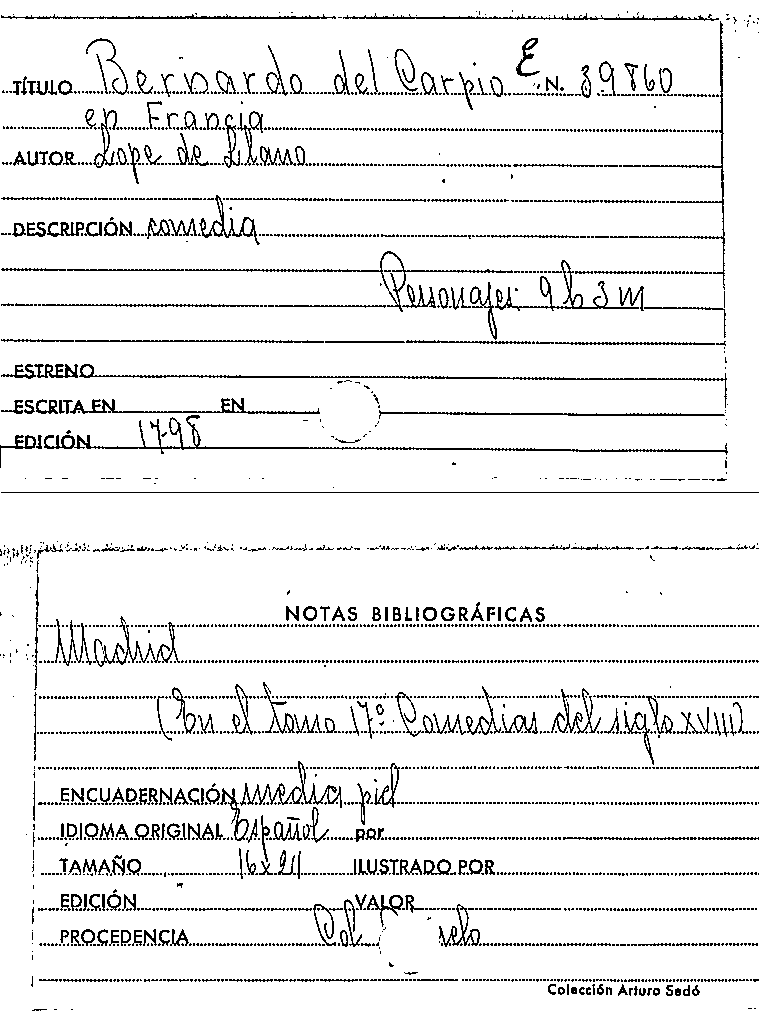 TÍTULO Bernardo del Carpio E N. 39860
en Francia
AUTOR Lope de Llano
DESCRIPCIÓN comedia
Personajes: 9 h 3 m
ESTRENO
ESCRITA EN EN
EDICIÓN 1798
NOTAS BIBLIOGRÁFICAS
Madrid
(En el tomo 17º Comedias del siglo XVIII)
ENCUADERNACIÓN media piel
IDIOMA ORIGINAL Español por
TAMAÑO 16x21 ILUSTRADO POR
EDICIÓN VALOR
PROCEDENCIA Col
Colección Arturo Sedó